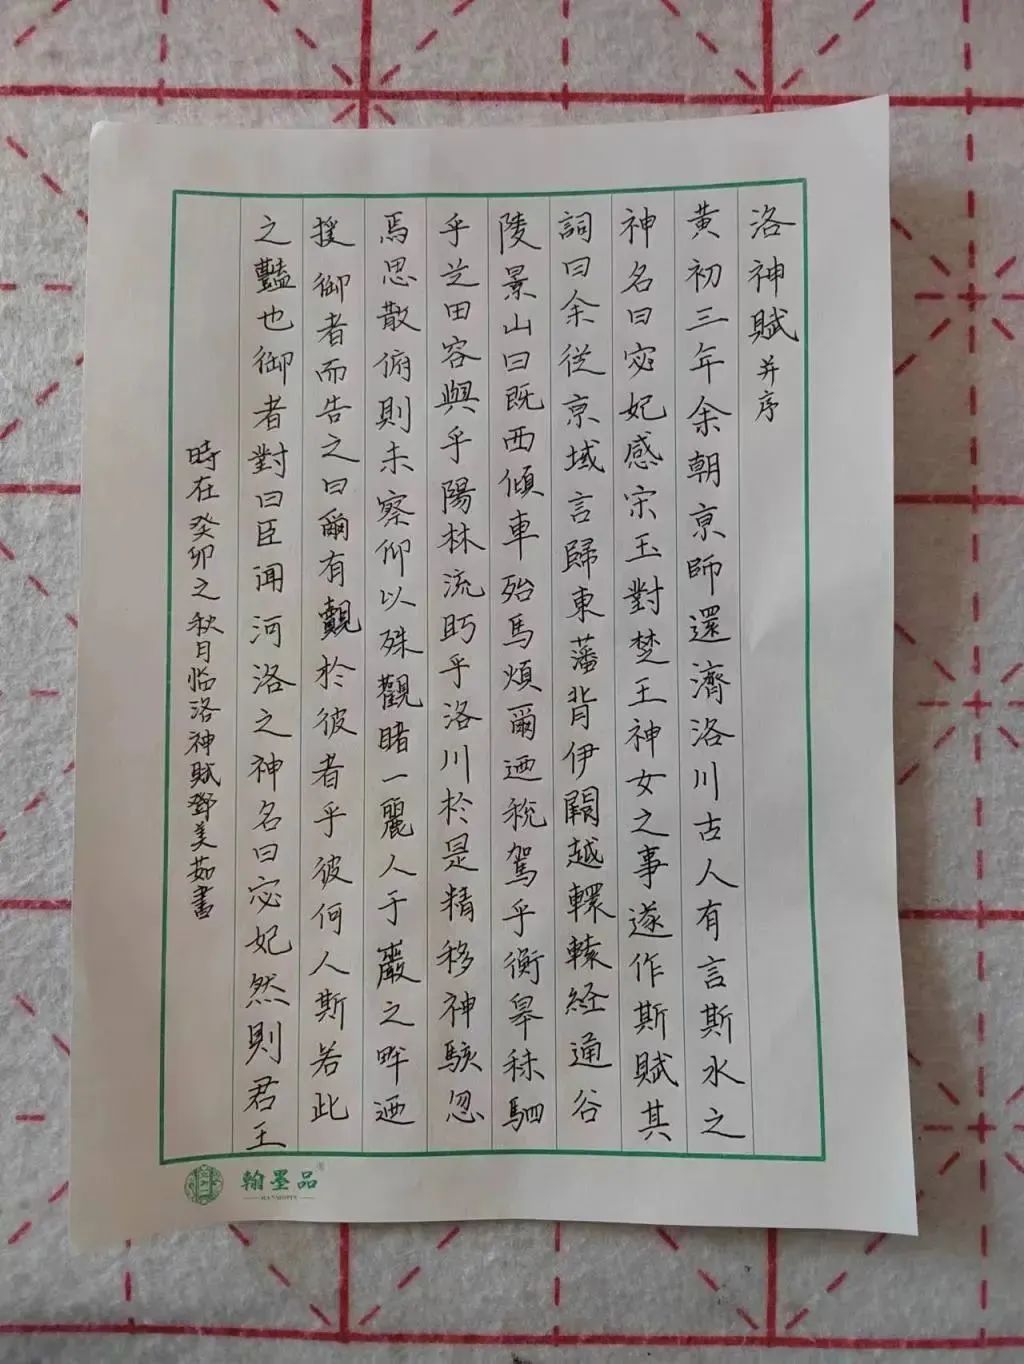 洛神賦并序
黄初三年余朝京師還濟洛川古人有言斯水之
神名曰宓妃感宋玉對楚王神女之事遂作斯賦其
詞曰余從京域言歸東藩背伊闕越轘轅経通谷
陵景山曰既西傾車殆馬煩爾迺税駕乎衡皋秣駟
乎芝田容與乎陽林流眄乎洛川於是精移神駭忽
焉思散俯則未察仰以殊觀睹一麗人于巖之畔迺
援御者而告之曰爾有覿於彼者乎彼何人斯若此
之豔也御者對曰臣闻河洛之神名曰宓妃然則君王
時在癸卯之秋月临洛神賦鄧美茹書
翰墨品
HANMOPIN